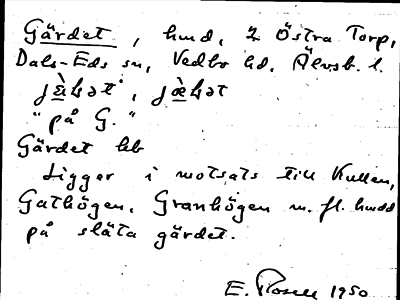 Gärdet, hmd, i Östra Torp,
Dals-Eds sn, Vedbo hd, Älvsb. l.
"på G."
Gärdet hb
Ligger i motsats till Kullen,
Gathögen, Granhögen m. fl. hmdd
på släta gärdet.
E. Rosell 1950